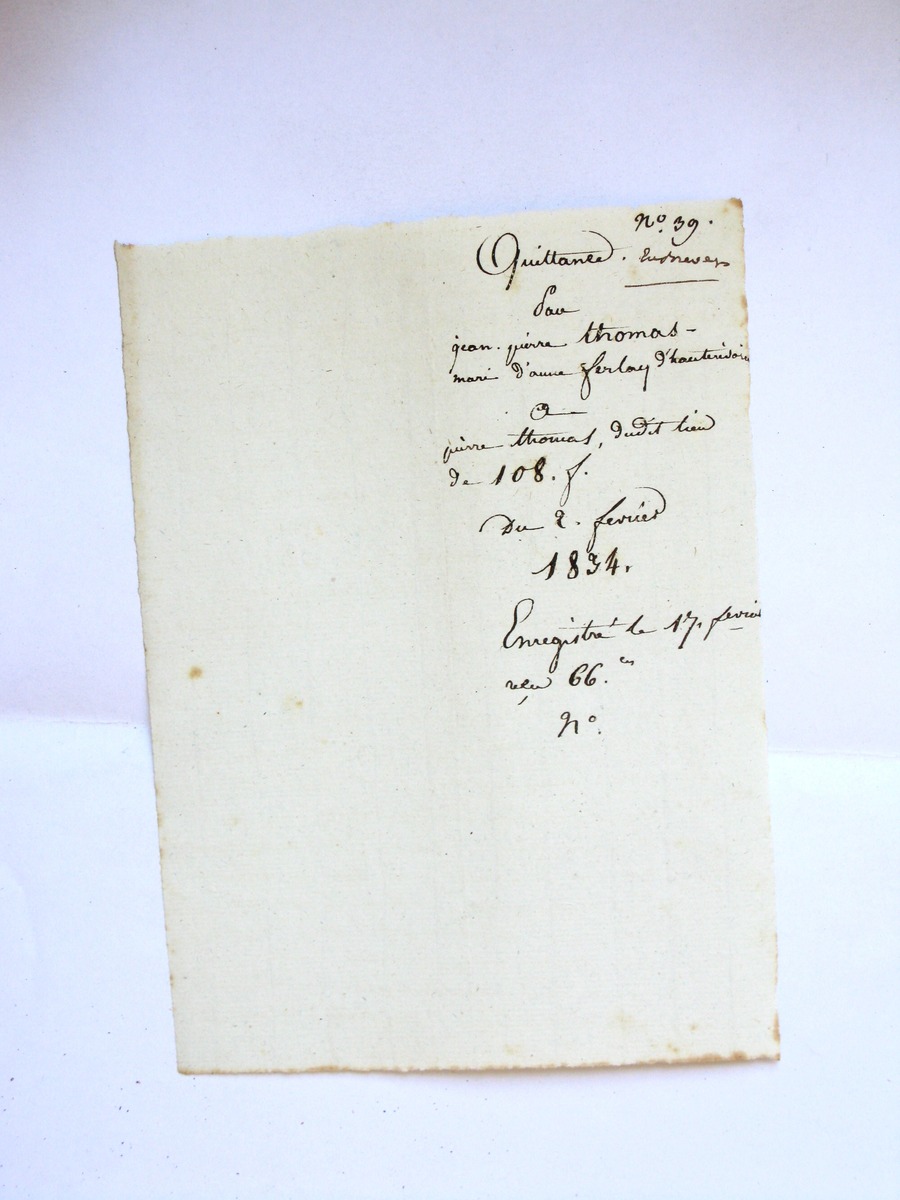 N.º 39.
Quittance. En brevet
Par
jean-pierre thomas-
mari d'anne ferlay d'hauterivoire
a
pierre thomas, dudit lieu
de 108. f.
Du 2. fevrier
1834.
Enregistré le 17. fevrier
reçu 66. ces
N.º